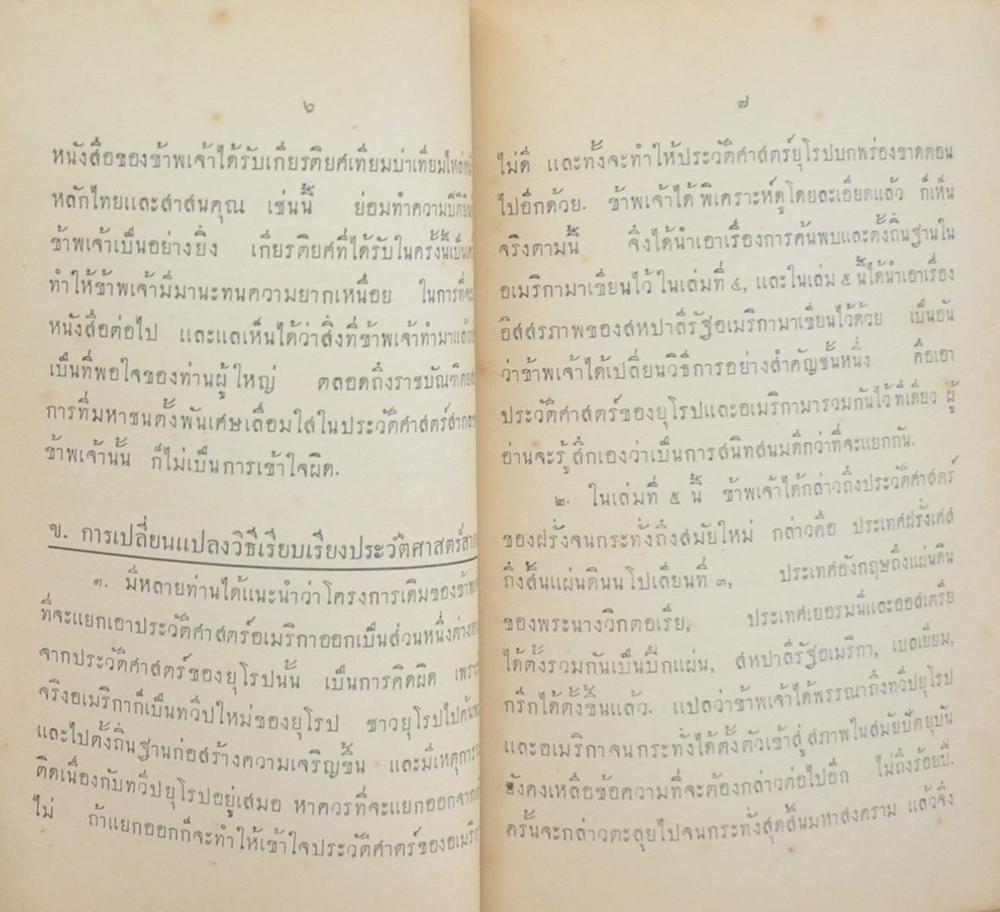 ๖
หนังสือของข้าพเจ้าได้รับเกียรติยศเทียมบ่าเทียมไหล่
หลักไทยและสาสนคุณ เช่นนี้ ย่อมทำความ
ข้าพเจ้าเป็นอย่างยิ่ง เกียรติยศที่ได้รับในครั้งนี้เป็น
ทำให้ข้าพเจ้ามีมานะทนความยากเหนื่อย ในการที่จะ
หนังสือต่อไป และแลเห็นได้ว่าสิ่งที่ข้าพเจ้าทำมาแล้ว
เป็นที่พอใจของท่านผู้ใหญ่ ตลอดถึงราชบัณฑิต
การที่มหาชนตั้งพันเศษเลื่อมใสในประวัติศาสตร์สากล
ข้าพเจ้านั้น ก็ไม่เป็นการเข้าใจผิด.
ข. การเปลี่ยนแปลงวิธีเรียบเรียงประวัติศาสตร์สากล
๑. มีหลายท่านได้แนะนำว่าโครงการเดิมของข้าพเจ้า
ที่จะแยกเอาประวัติศาสตร์อเมริกาออกเป็นส่วนหนึ่งต่างหาก
จากประวัติศาสตร์ของยุโรปนั้น เป็นการคิดผิด เพราะ
จริงอเมริกาก็เป็นทวีปใหม่ของยุโรป ชาวยุโรปไปค้นพบ
และไปตั้งถิ่นฐานก่อสร้างความเจริญขึ้น และมีเหตุการณ์
ติดเนื่องกับทวีปยุโรปอยู่เสมอ หาควรที่จะแยกออกจากกัน
ไม่ ถ้าแยกออกก็จะทำให้เข้าใจประวัติศาสตร์ของอเมริกา
๗
ไม่ดี และทั้งจะทำให้ประวัติศาสตร์ยุโรปบกพร่องขาดตอน
ไปอีกด้วย. ข้าพเจ้าได้พิเคราะห์ดูโดยละเอียดแล้ว ก็เห็น
จริงตามนี้ จึงได้นำเอาเรื่องการค้นพบและตั้งถิ่นฐานใน
อเมริกามาเขียนไว้ในเล่มที่ ๔, และในเล่ม ๕ นี้ได้นำเอาเรื่อง
อิสสรภาพของสหปาลีรัฐอเมริกามาเขียนไว้ด้วย เป็นอัน
ว่าข้าพเจ้าได้เปลี่ยนวิธีการอย่างสำคัญชั้นหนึ่ง คือเอา
ประวัติศาสตร์ของยุโรปและอเมริกามารวมกันไว้ที่เดียว ผู้
อ่านจะรู้สึกเองว่าเป็นการสนิทสนมดีกว่าที่จะแยกกัน.
๒. ในเล่มที่ ๕ นี้ ข้าพเจ้าได้กล่าวถึงประวัติศาสตร์
ของฝรั่งจนกระทั่งถึงสมัยใหม่ กล่าวคือ ประเทศฝรั่งเศส
ถึงสิ้นแผ่นดินนโปเลียนที่ ๓, ประเทศอังกฤษถึงแผ่นดิน
ของพระนางวิกตอเรีย, ประเทศเยอรมนีและออสเตรีย
ได้ตั้งรวมกันเป็นปึกแผ่น, สหปาลีรัฐอเมริกา, เบลเยียม,
กรีกได้ตั้งขึ้นแล้ว. แปลว่าข้าพเจ้าได้พรรณาถึงทวีปยุโรป
และอเมริกาจนกระทั่งได้ตั้งตัวเข้าสู่สภาพในสมัยปัตยุบัน
ยังคงเหลือข้อความที่จะต้องกล่าวต่อไปอีก ไม่ถึงร้อยปี.
ครั้นจะกล่าวตะลุยไปจนกระทั่งสุดสิ้นมหาสงคราม แล้วจึง